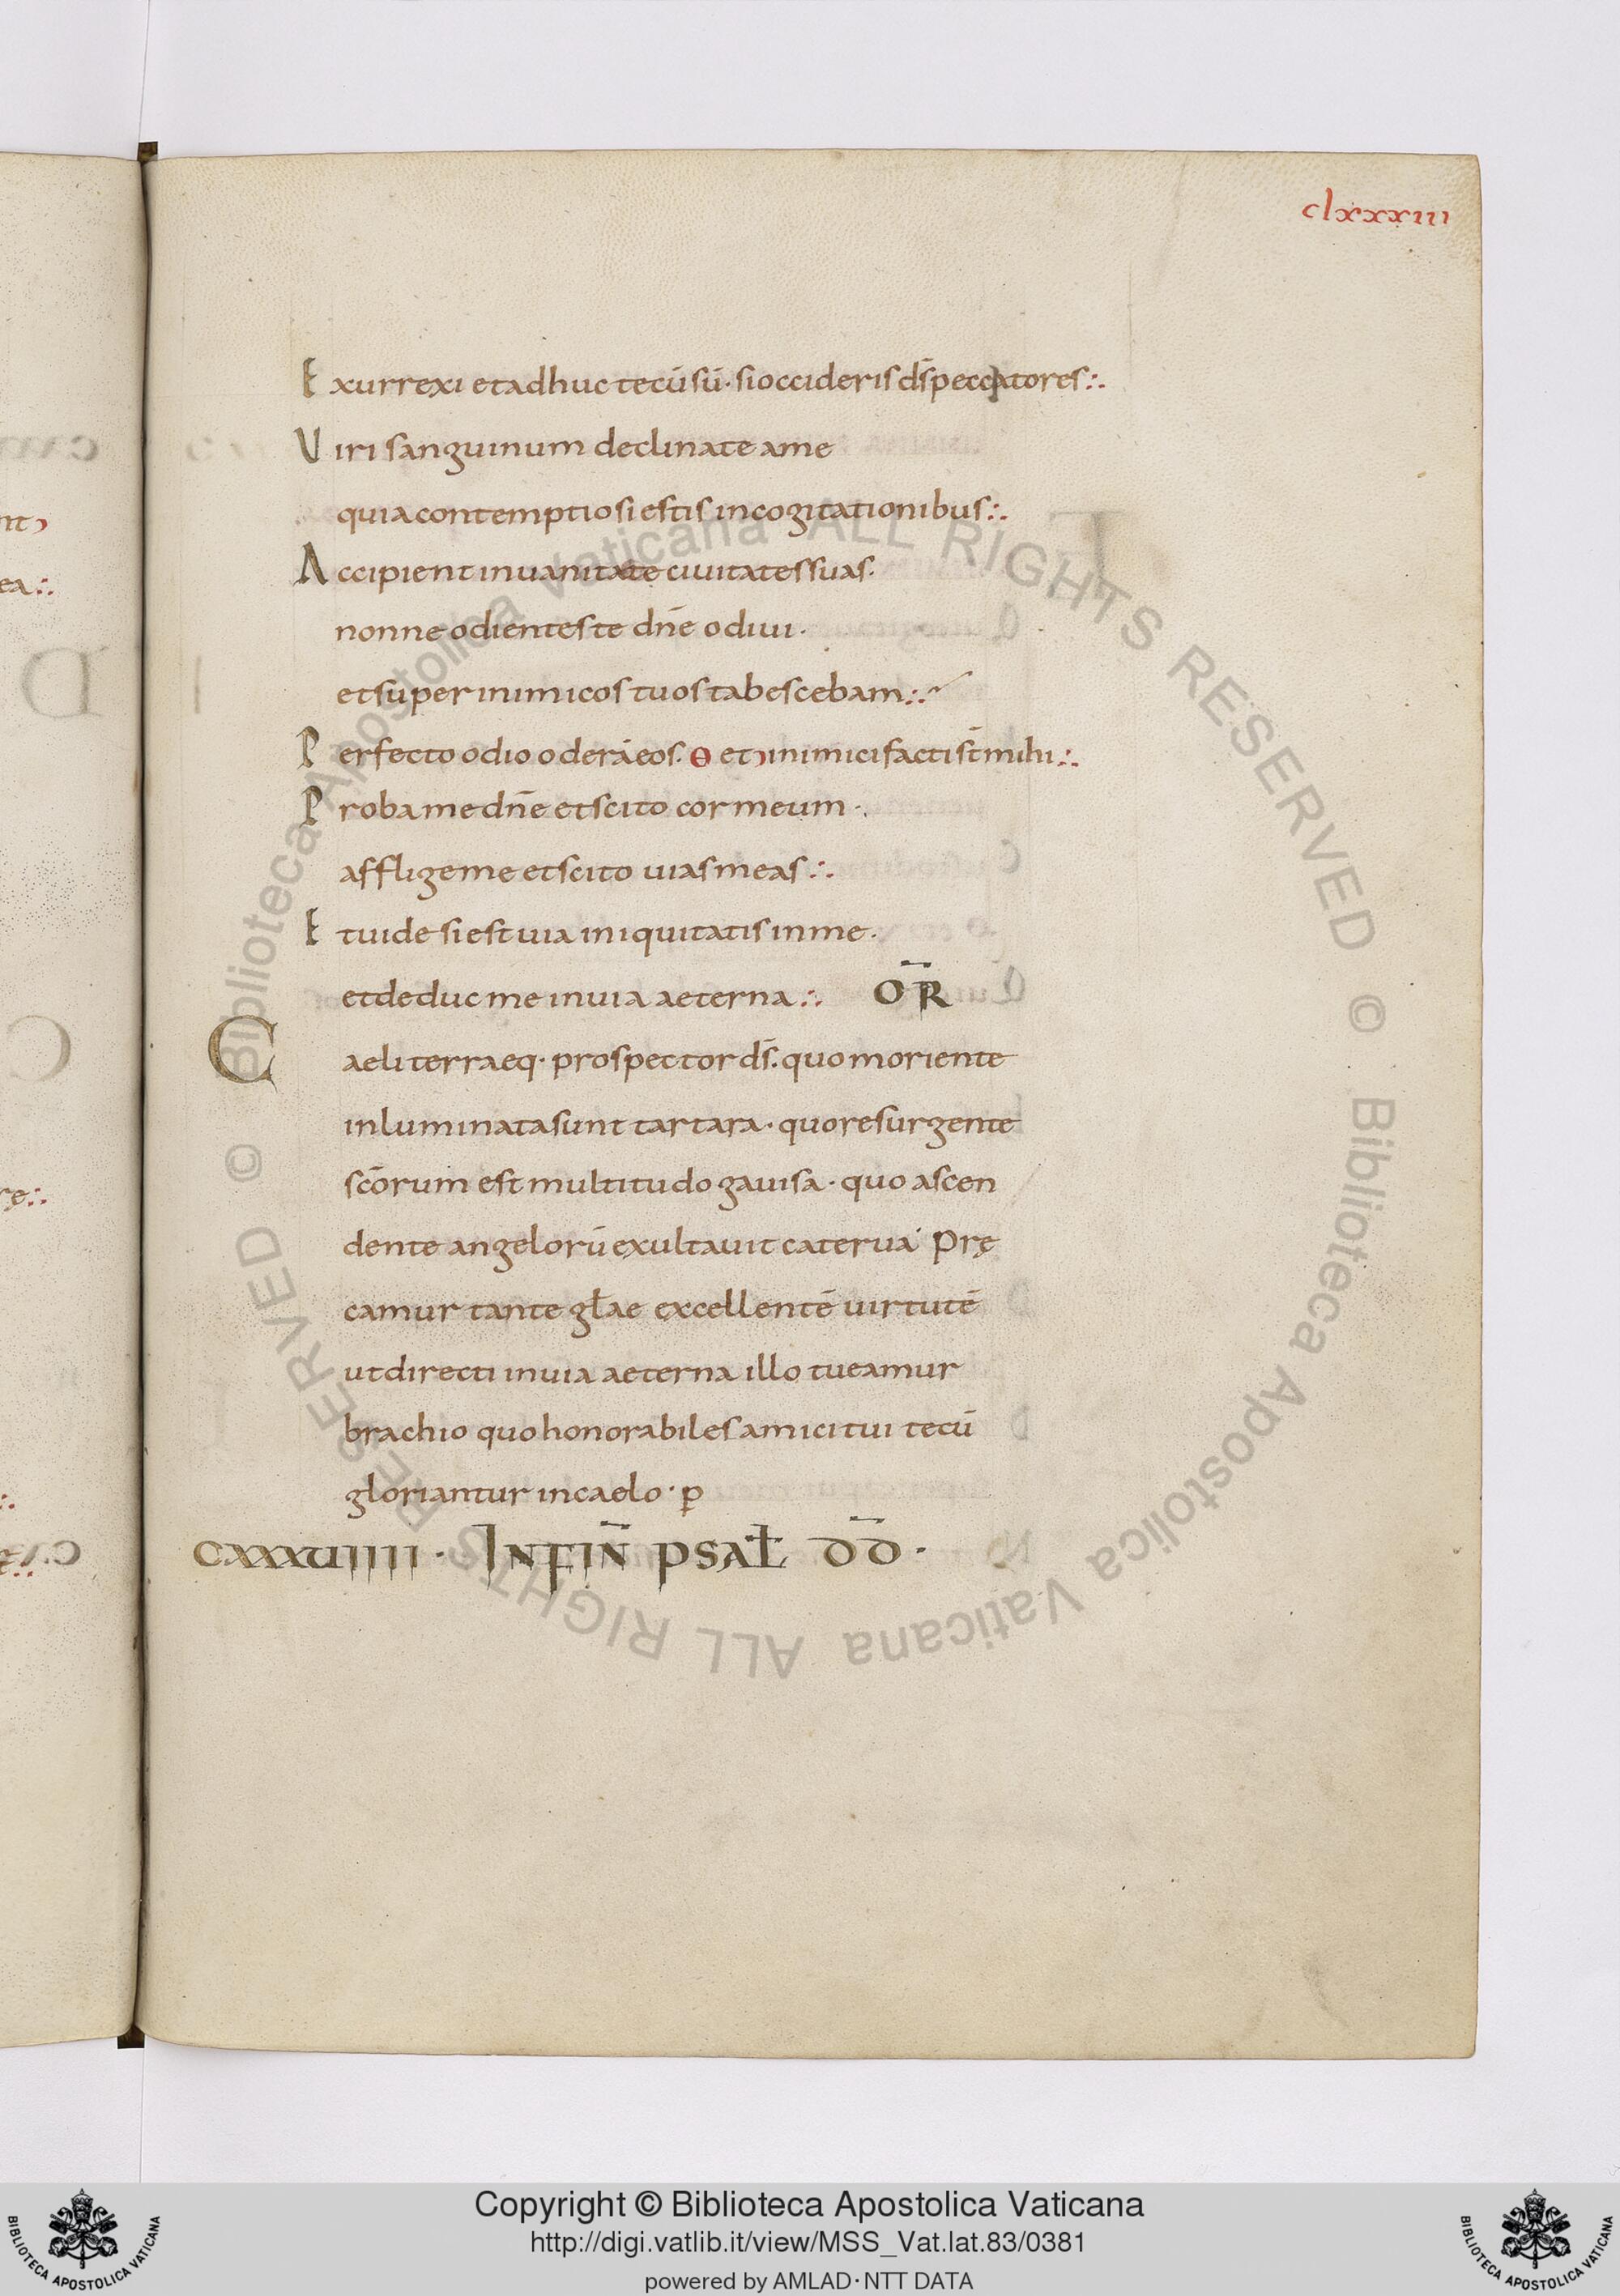 clxxxiii
Exurrexi et adhuc tecū sū· si occideris d̄s peccatores:.
Viri sanguinum declinate a me
quia contemptiosi estis in cogitationibus:.
Accipient in uanitate ciuitates suas·
nonne odientes te dn̄e odiui·
et super inimicos tuos tabescebam:.
Perfecto odio oderā eos· ꝋ et inimici facti st̄ mihi:.
Proba me dn̄e et scito cor meum·
afflige me et scito uias meas:.
Et uide si est uia iniquitatis in me·
et deduc me in uia aeterna:. OR̄
Caeli terraeq· prospector d̄s· quo moriente
inluminata sunt tartara· quo resurgente
sc̄orum est multitudo gauisa· quo ascen
dente angelorū exultauit caterua Prę
camur tante gl̄ae excellentē uirtutē
ut directi in uia aeterna illo tueamur
brachio quo honorabiles amici tui tecū
gloriantur in caelo· p̱
CXXXUIIII· IN FIN̄ PSAL̄ DD̄·
nt,
ea:.
D
C
rę:.
:.
Biblioteca Apostolica Vaticana ALL RIGHTS RESERVED © Biblioteca Apostolica Vaticana ALL RIGHTS RESERVED ©
Copyright © Biblioteca Apostolica Vaticana
http://digi.vatlib.it/view/MSS_Vat.lat.83/0381
powered by AMLAD·NTT DATA
BIBLIOTECA APOSTOLICA VATICANA
BIBLIOTECA APOSTOLICA VATICANA